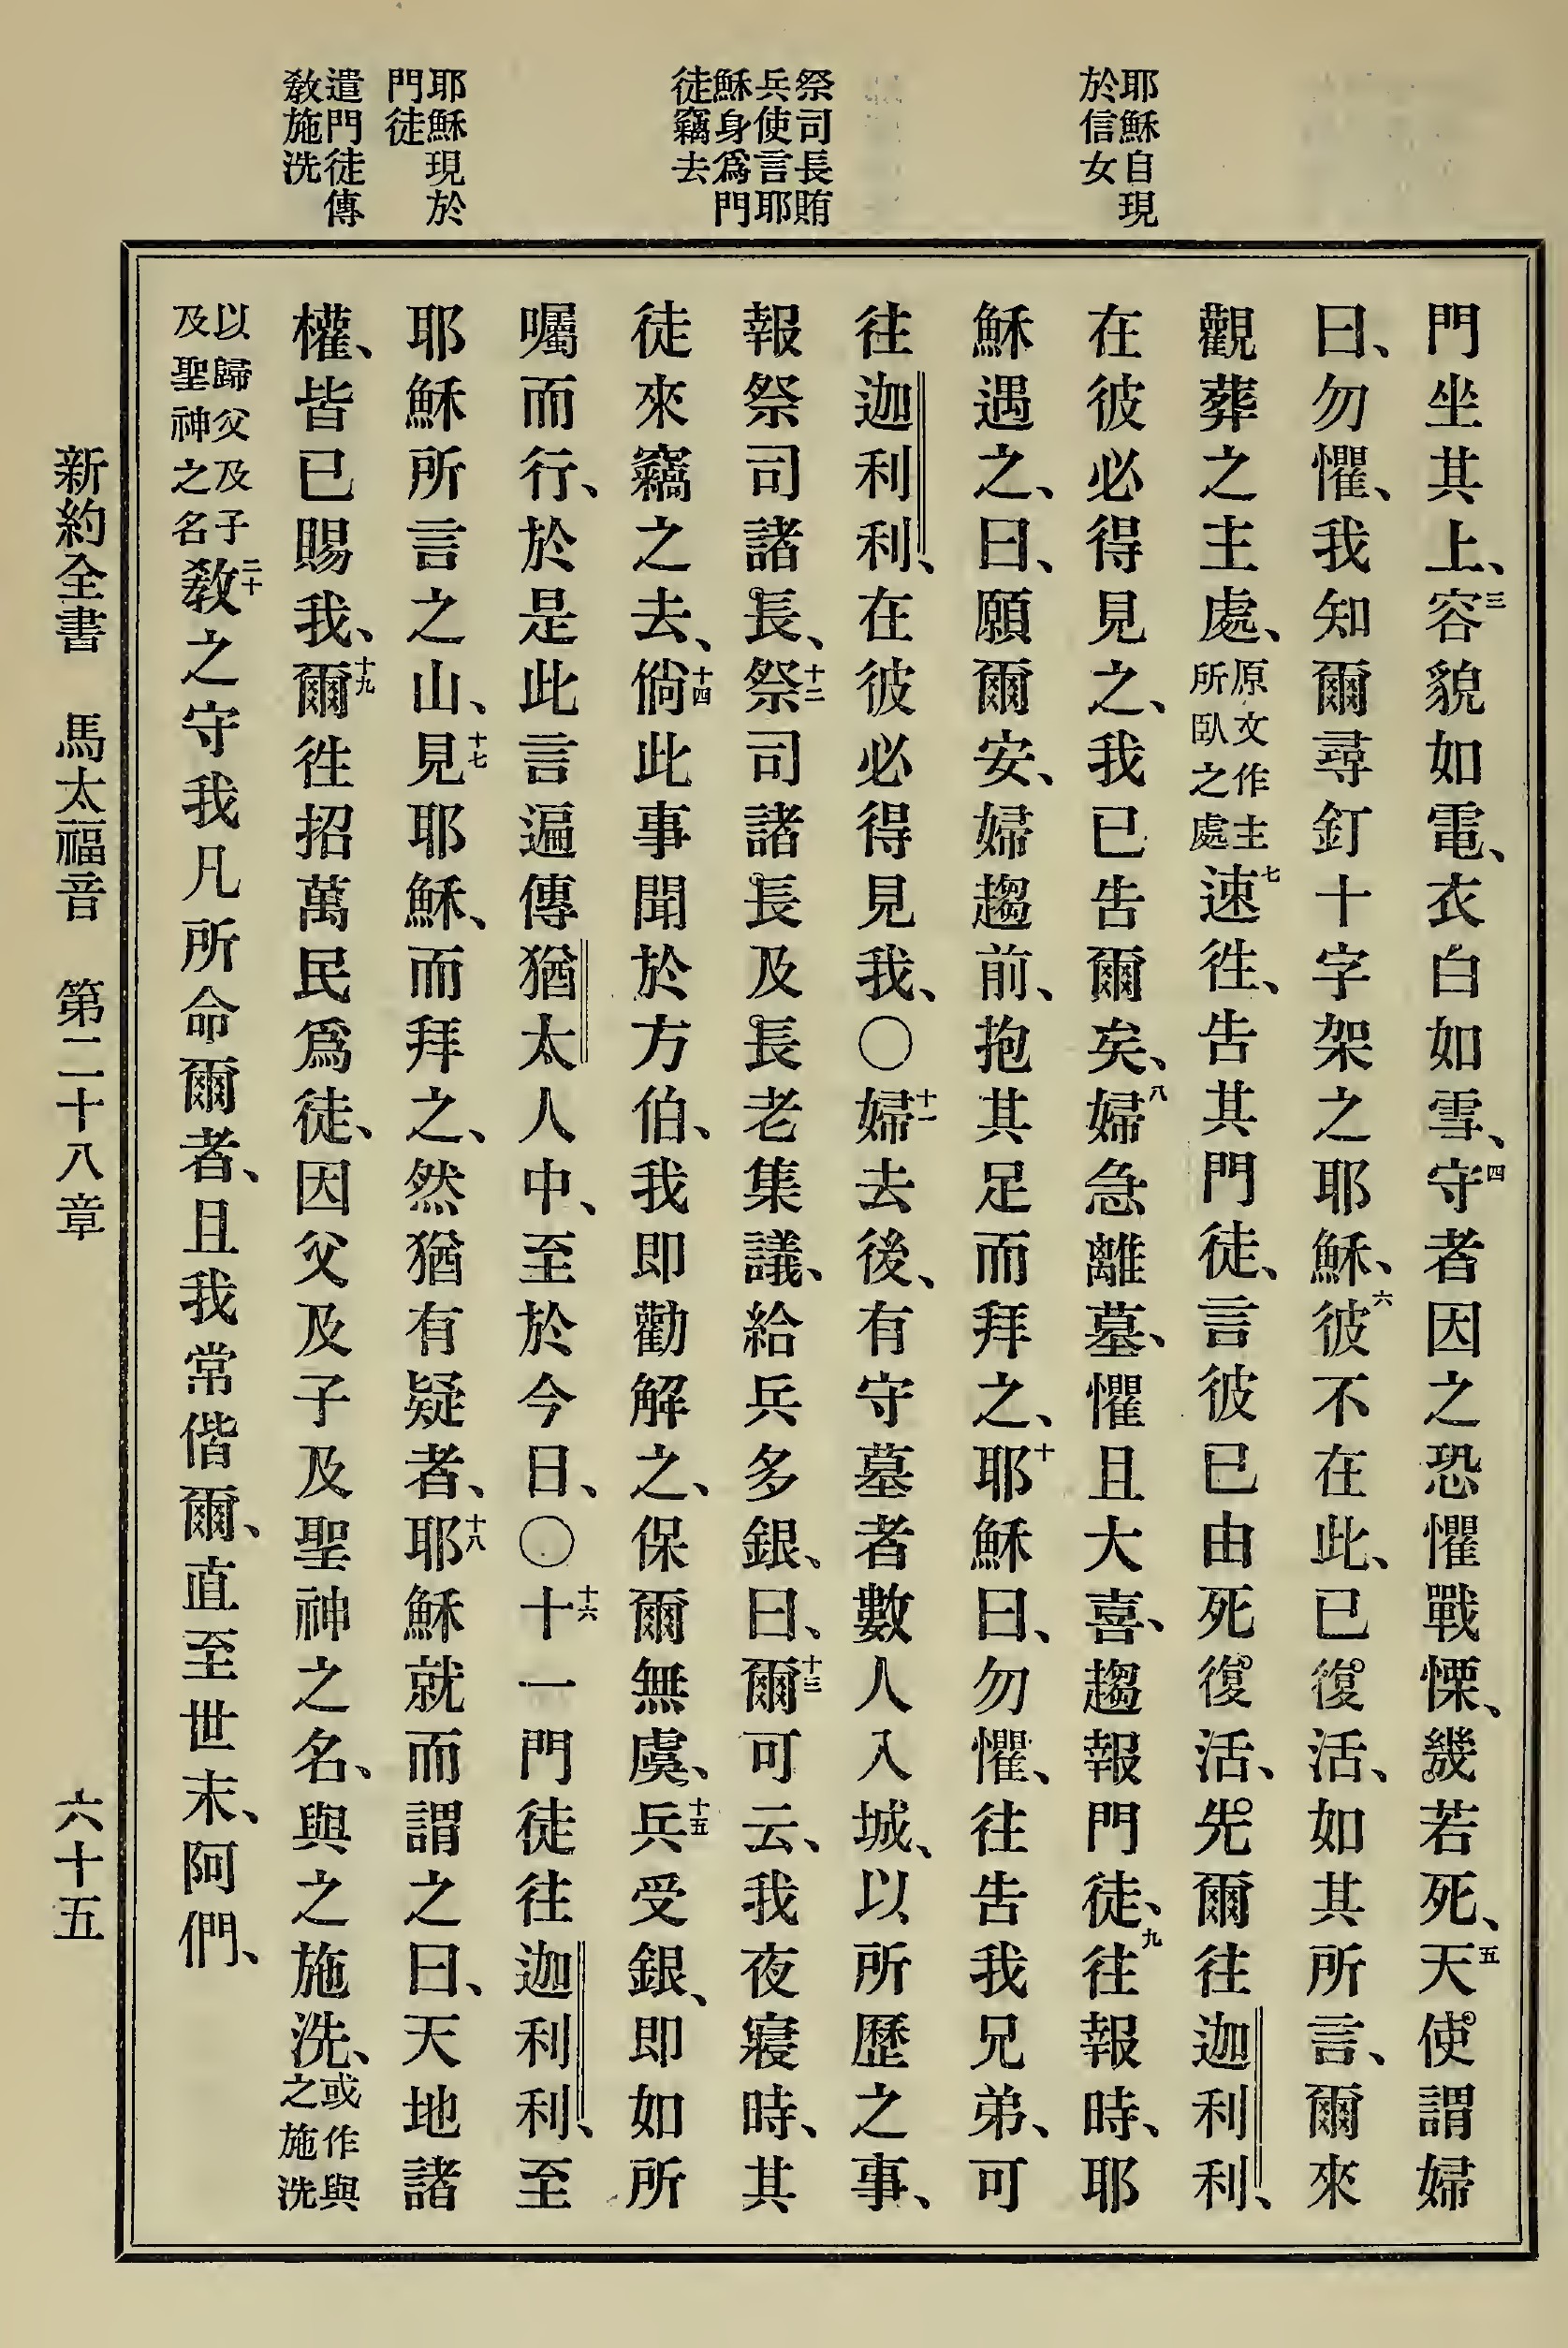 耶穌自現
於信女
祭司長賄
兵使言耶
穌身爲門
徒竊去
耶穌現於
門徒
遣門徒傳
教施洗
門坐其上、三容貌如電、衣白如雪、四守者因之恐懼戰慄、幾若死、五天使謂婦
曰、勿懼、我知爾尋釘十字架之耶穌、六彼不在此、已復活、如其所言、爾來
觀葬之主處、原文作主所臥之處七速徃、告其門徒、言彼已由死復活、先爾往迦利利、
在彼必得見之、我已告爾矣、八婦急離墓、懼且大喜、趨報門徒、九往報時、耶
穌遇之、曰、願爾安、婦趨前、抱其足而拜之、十耶穌曰、勿懼、往告我兄弟、可
往迦利利、在彼必得見我、〇十一婦去後、有守墓者數人入城、以所歷之事、
報祭司諸長、十二祭司諸長及長老集議、給兵多銀、曰、十三爾可云、我夜寢時、其
徒來竊之去、十四倘此事聞於方伯、我即勸解之、保爾無虞、十五兵受銀、即如所
囑而行、於是此言遍傳猶太人中、至於今日、〇十六十一門徒往迦利利、至
耶穌所言之山、十七見耶穌、而拜之、然猶有疑者、十八耶穌就而謂之曰、天地諸
權、皆已賜我、十九爾徃招萬民爲徒、因父及子及聖神之名、與之施洗、或作與之施洗
以歸父及子及聖神之名二十教之守我凡所命爾者、且我常偕爾、直至世末、阿們、
新約全書 馬太福音 第二十八章 六十五